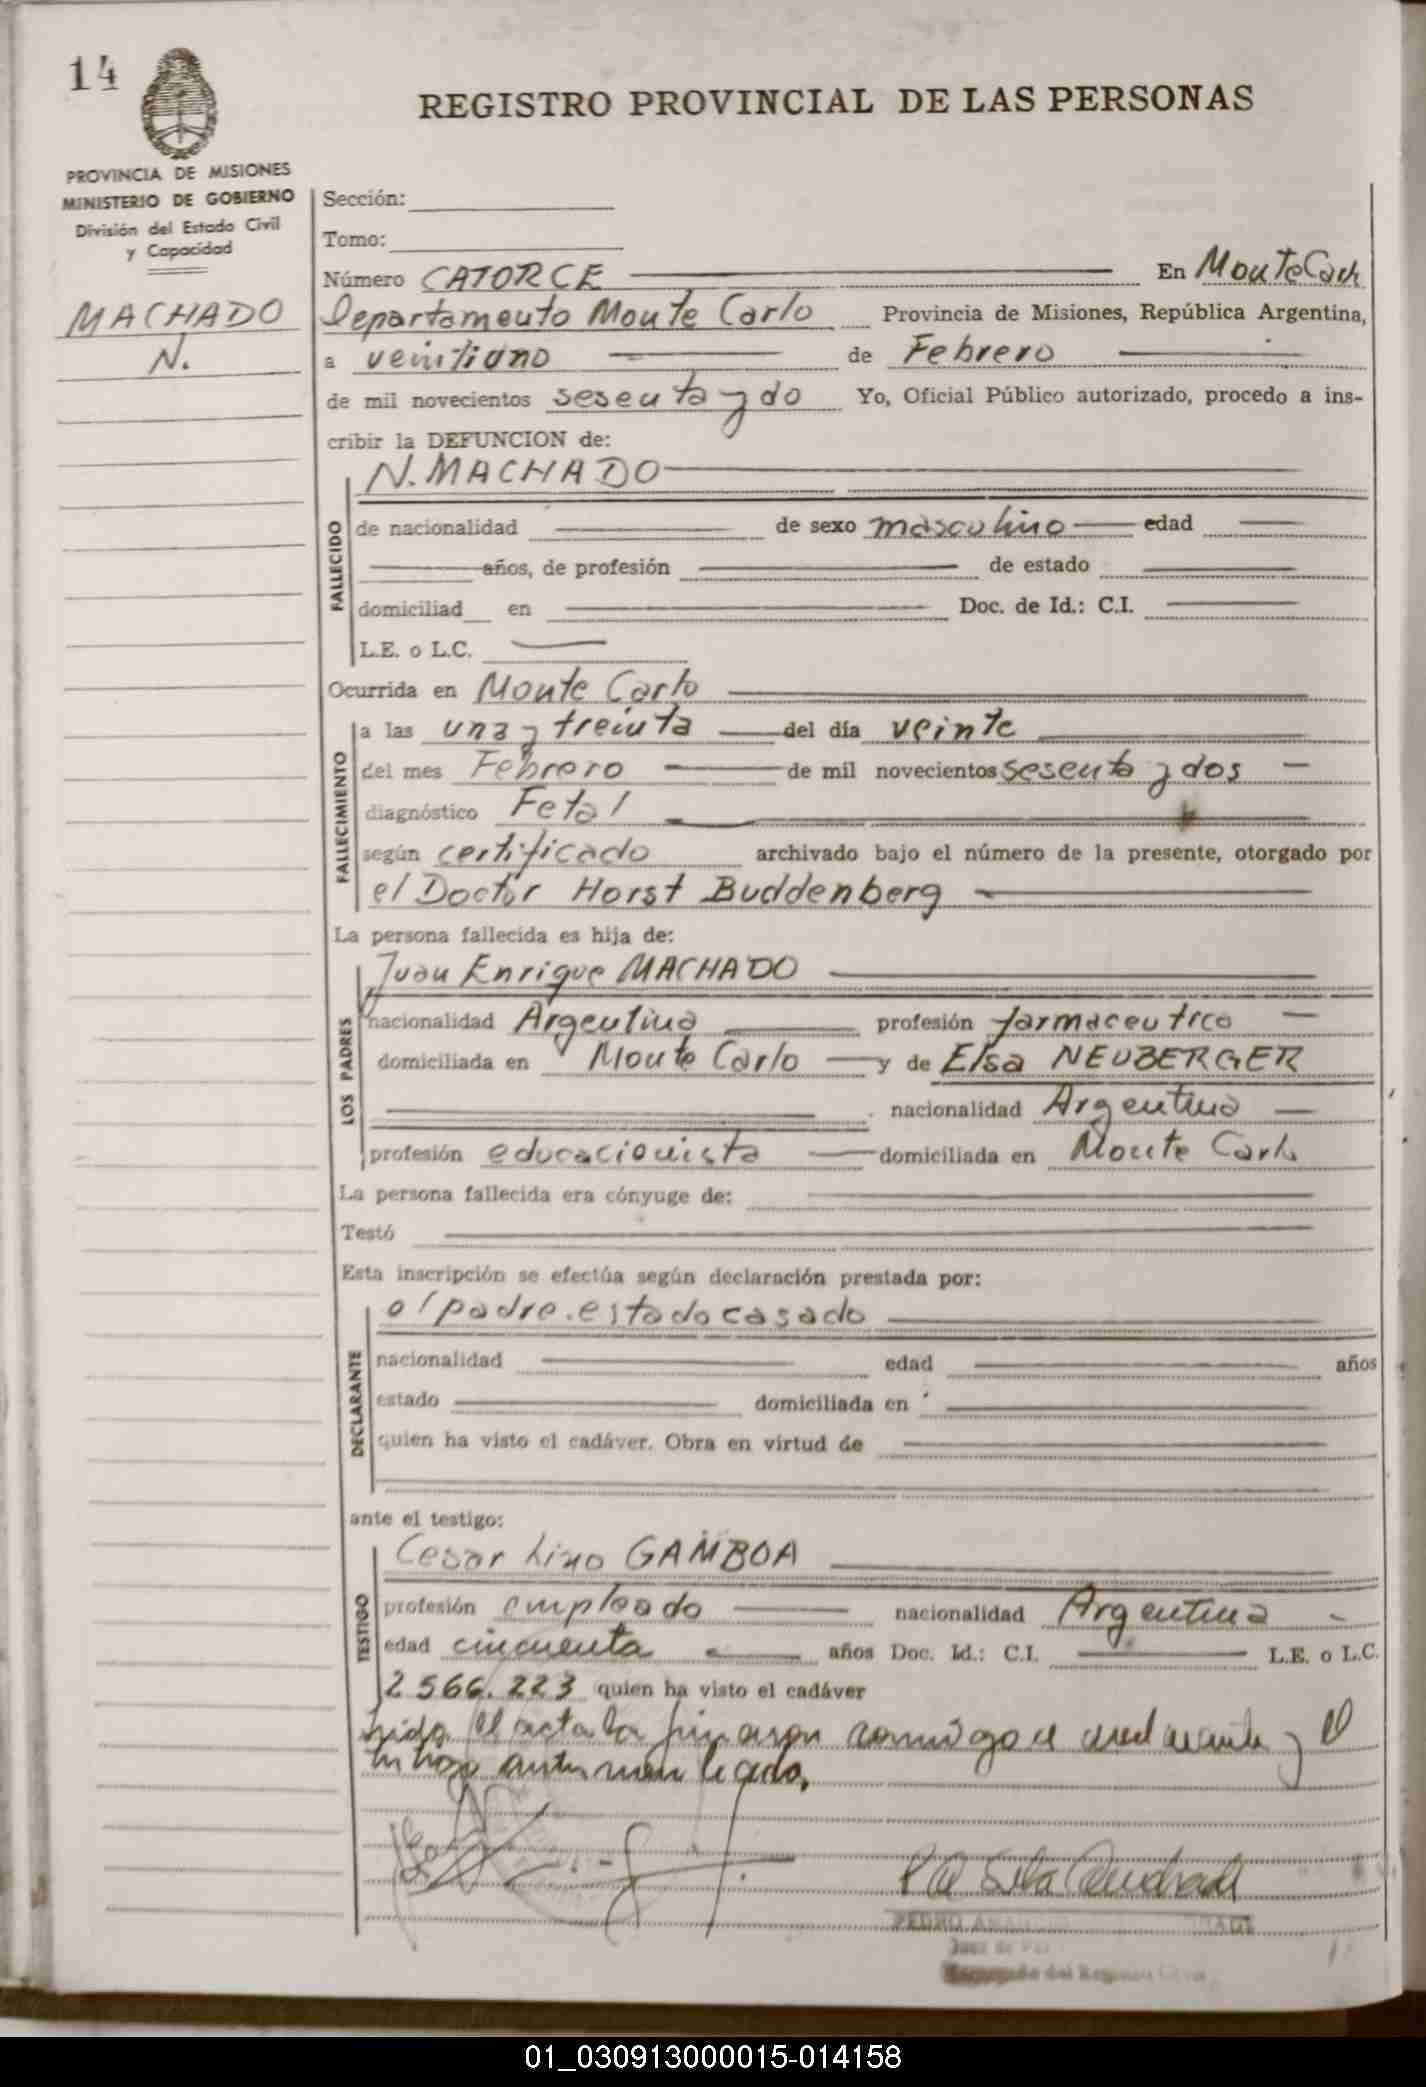 14
REGISTRO PROVINCIAL DE LAS PERSONAS
PROVINCIA DE MISIONES
MINISTERIO DE GOBIERNO
División del Estado Civil
y Capacidad
MACHADO
N.
Sección:
Tomo:
Número CATORCE En Monte Carlo
Departamento Monte Carlo Provincia de Misiones, República Argentina,
a veintiuno de Febrero
de mil novecientos sesenta y do Yo, Oficial Público autorizado, procedo a ins-
cribir la DEFUNCION de:
N. MACHADO
FALLECIDO
de nacionalidad de sexo masculino edad
años, de profesión de estado
domiciliad en Doc. de Id.: C.I.
L.E. o L.C.
Ocurrida en Monte Carlo
FALLECIMIENTO
a las una y treinta del día veinte
del mes Febrero de mil novecientos sesenta y dos
diagnóstico Fetal
según certificado archivado bajo el número de la presente, otorgado por
el Doctor Horst Buddenberg
La persona fallecida es hija de:
LOS PADRES
Juan Enrique MACHADO
nacionalidad Argentina profesión farmaceutico
domiciliada en Monte Carlo y de Elsa NEUBERGER
nacionalidad Argentina
profesión educacionista domiciliada en Monte Carlo
La persona fallecida era cónyuge de:
Testó
Esta inscripción se efectúa según declaración prestada por:
DECLARANTE
el padre. estado casado
nacionalidad edad años
estado domiciliada en
quien ha visto el cadáver. Obra en virtud de
ante el testigo:
TESTIGO
Cesar Lino GAMBOA
profesión empleado nacionalidad Argentina
edad cincuenta años Doc. Id.: C.I. L.E. o L.C.
2566.223 quien ha visto el cadáver
el acta la firmaron conmigo el declarante y el
PEDRO
Juez de Paz
Encargado del Registro Civil
01_030913000015-014158